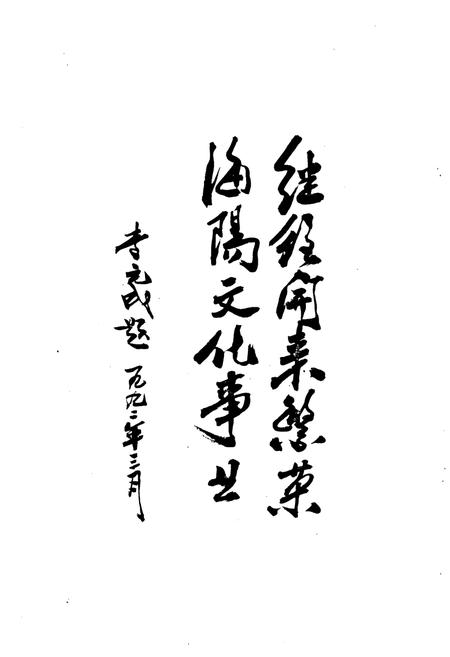 继往开来繁荣
海陽文化事业
李元成题 一九九二年三月